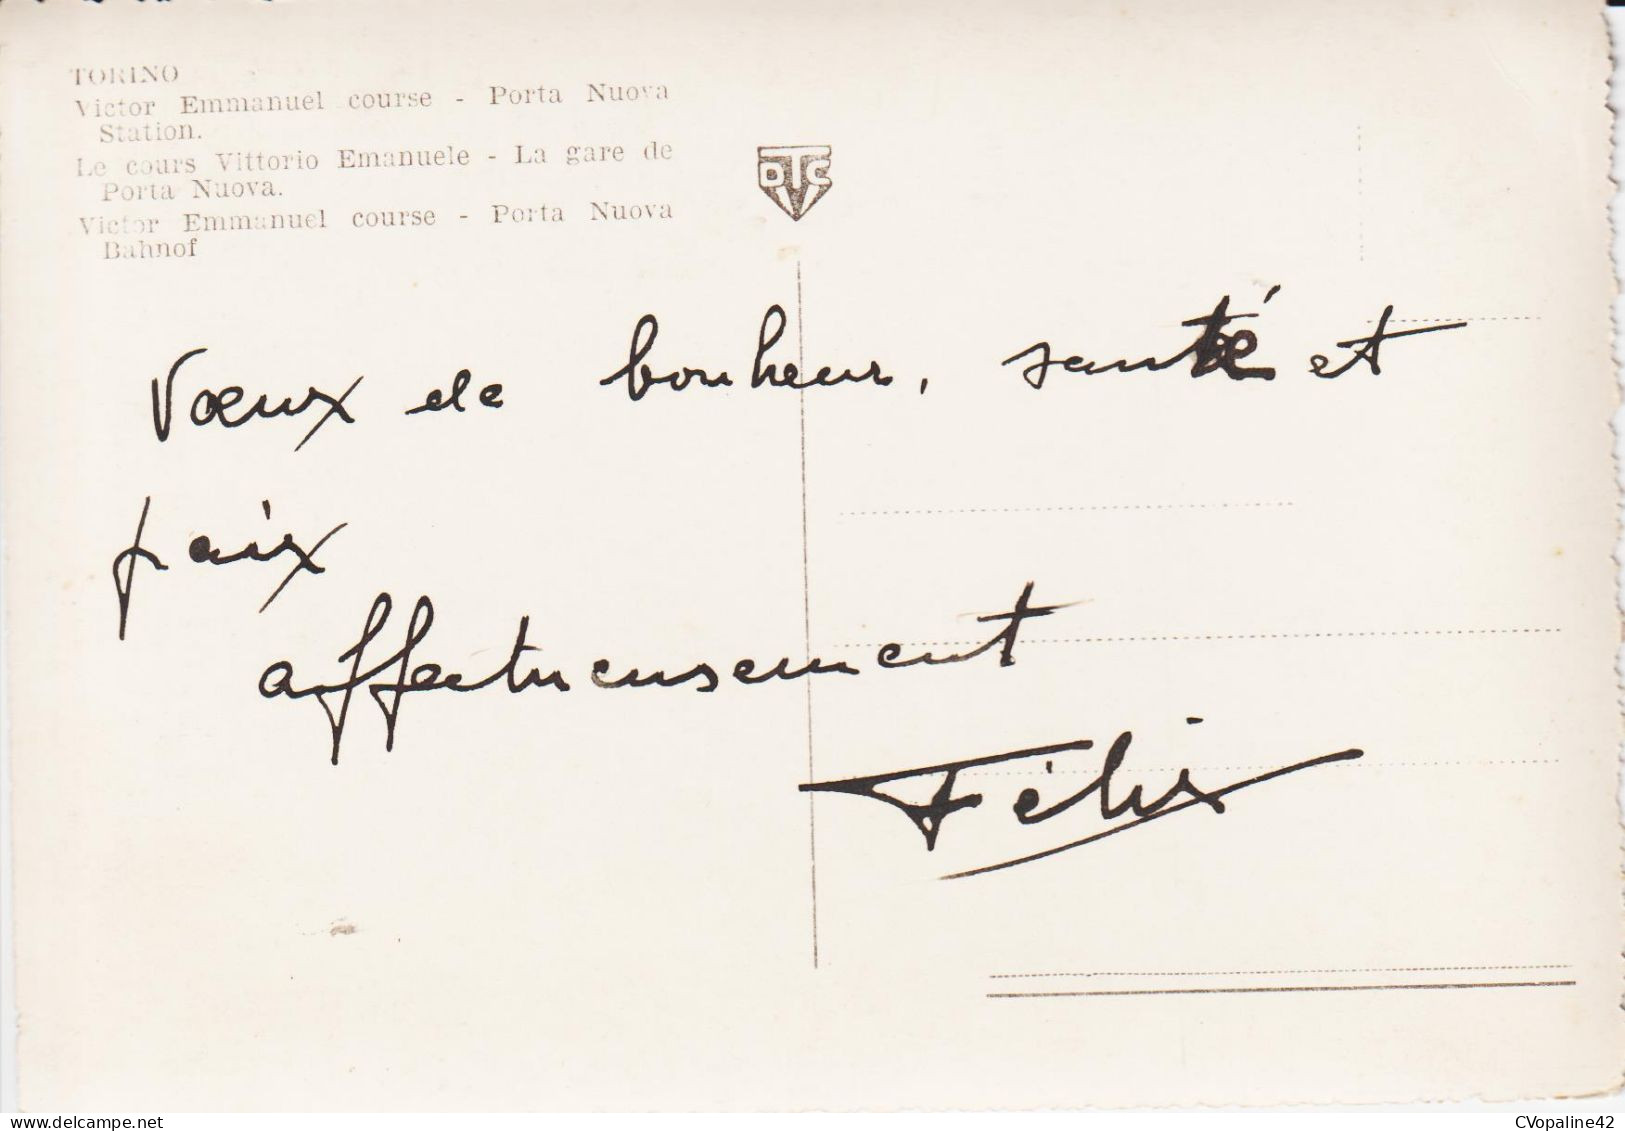 TORINO
Victor Emmanuel course - Porta Nuova
Station.
Le cours Vittorio Emanuele - La gare de
Porta Nuova.
Victor Emmanuel course - Porta Nuova
Bahnof
DTC
Voeux de bonheur, santé et
paix
affectueusement
Félix
CVopaline42